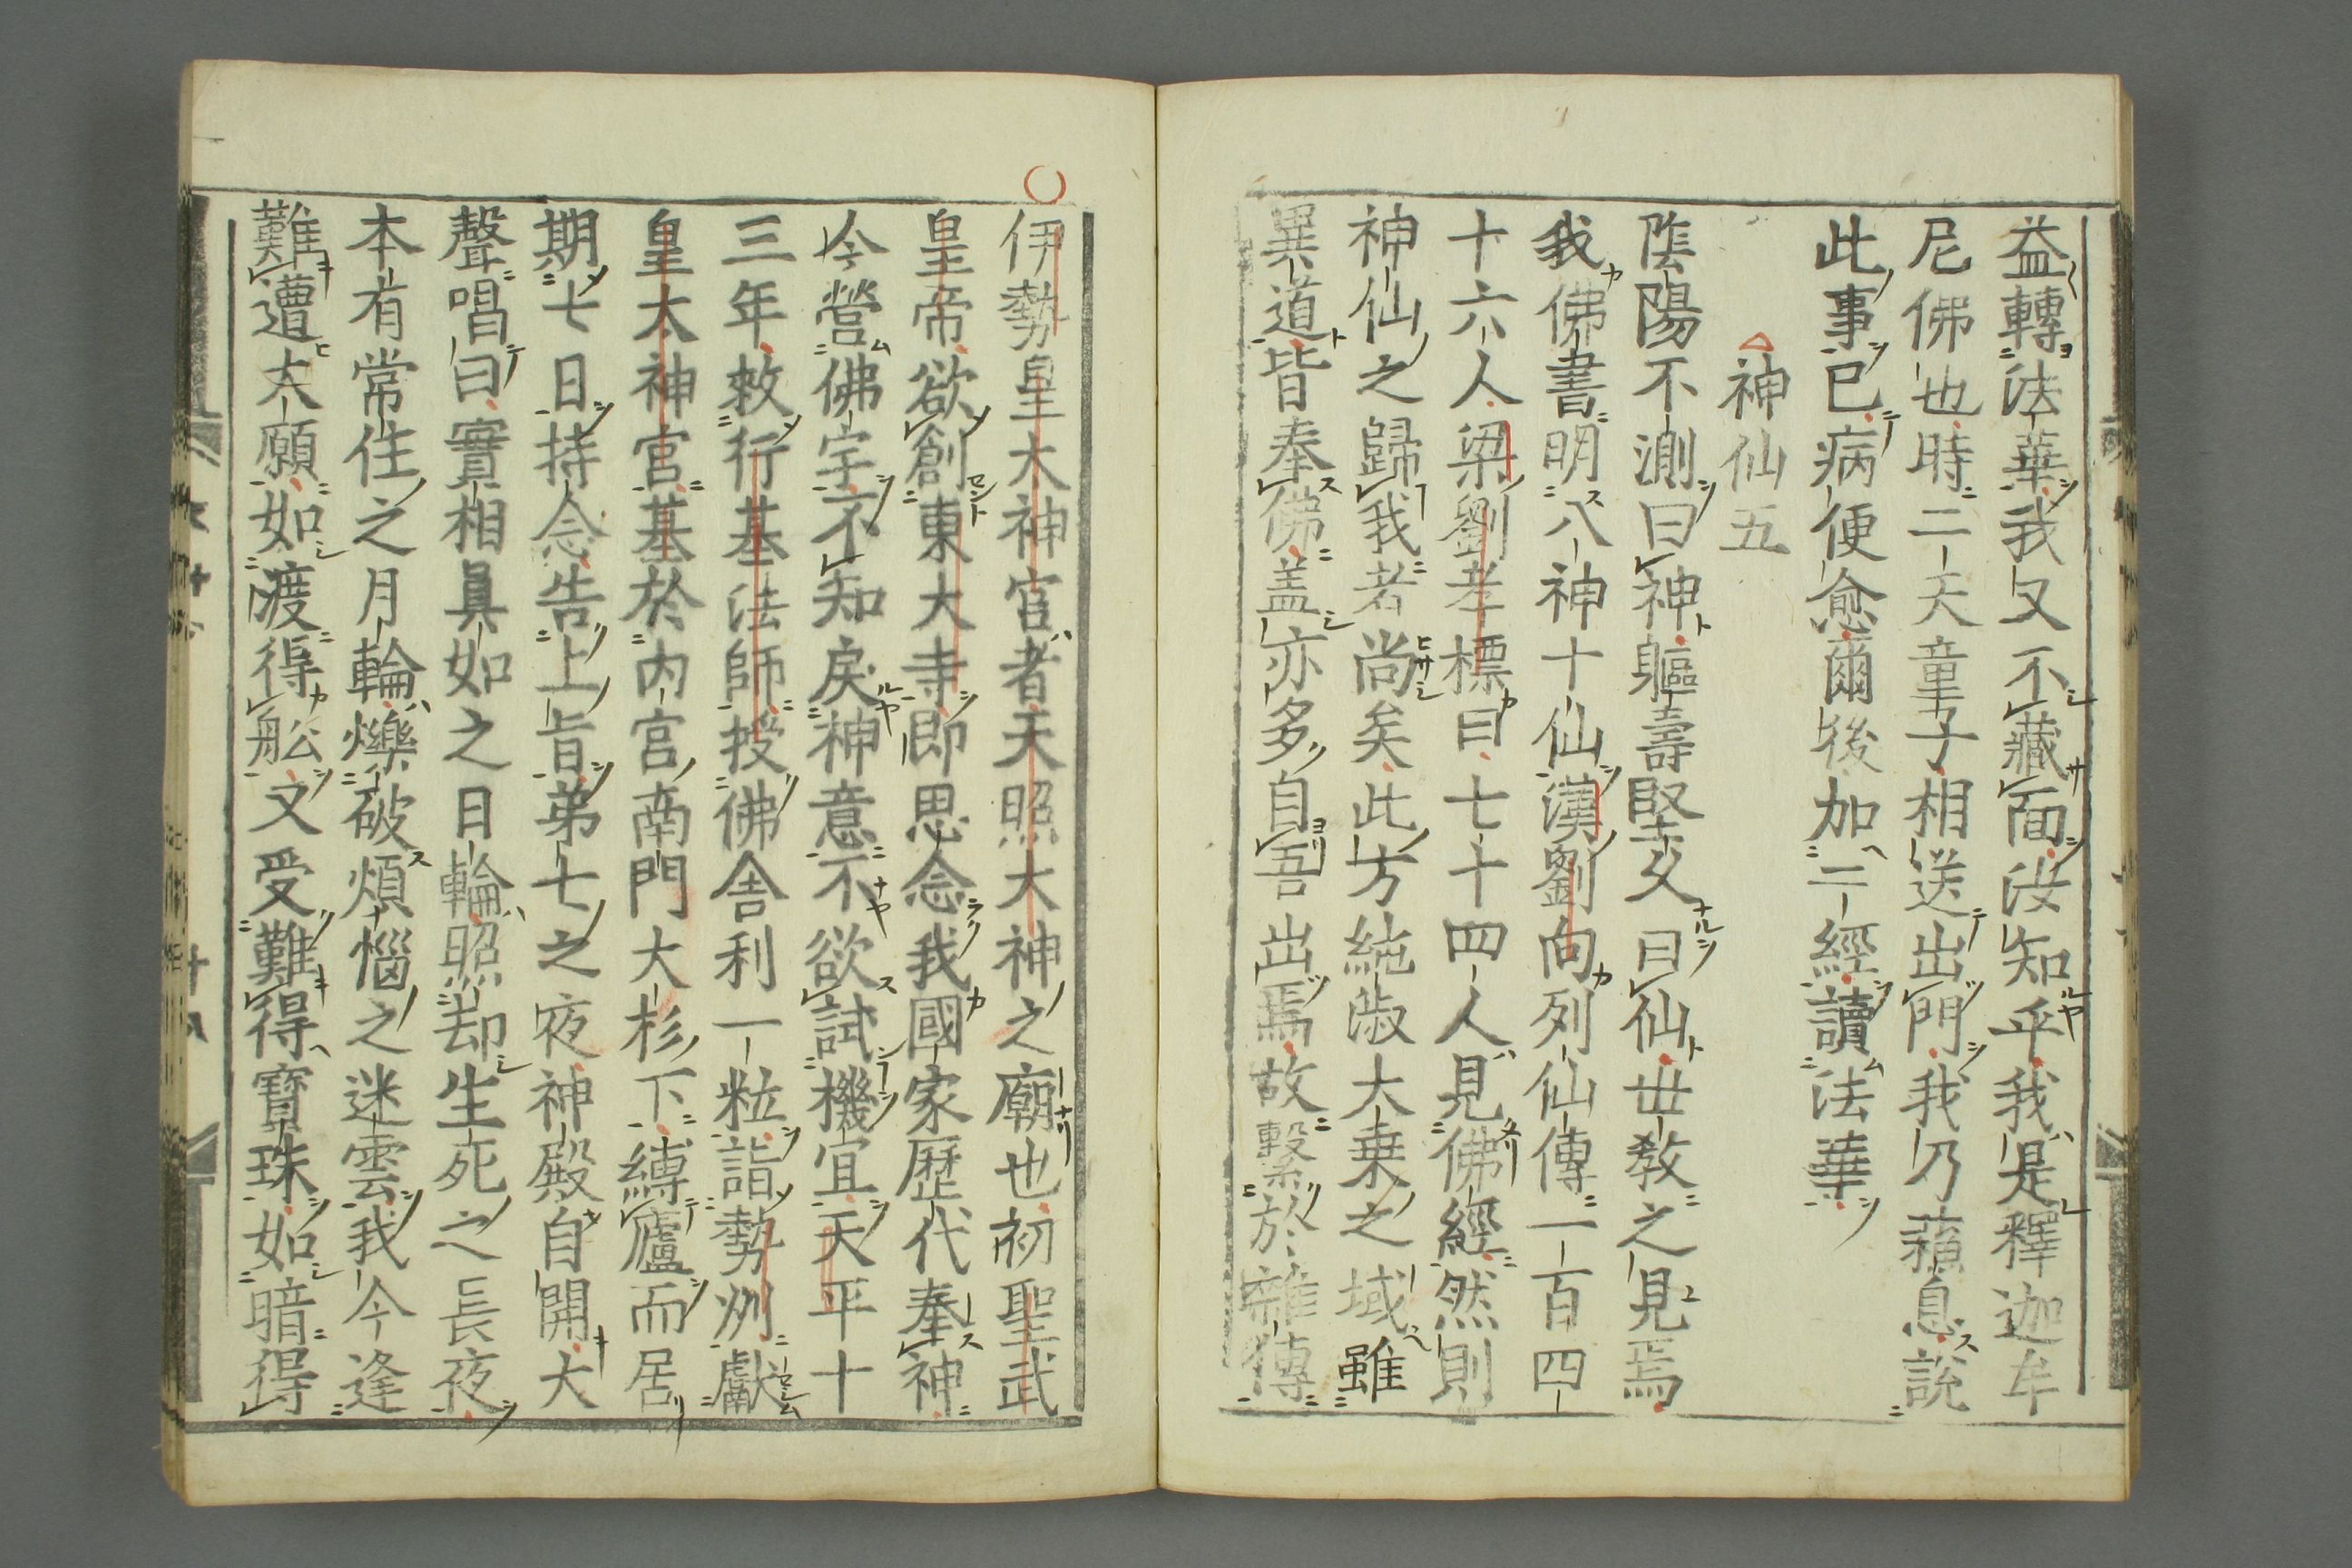 益轉法華我又不藏面汝知乎我是釋迦牟
尼佛也時二天童子相送出門我乃蘓息說
此事已病便愈爾後加二經讀法華
神仙五
陰陽不測曰神軀壽堅久曰仙世教之見焉
我佛書明八神十仙漢劉向列仙傳一百四
十六人梁劉孝標曰七十四人見佛經然則
神仙之歸我者尚矣此方純淑大乘之域雖
異道皆奉佛盖亦多自吾出焉故繫於雜傳
伊勢皇太神宮者天照大神之廟也初聖武
皇帝欲創東大寺即思念我國家歷代奉神
今營佛宇不知戾神意不欲試機宜天平十
三年敕行基法師授佛舍利一粒詣勢州獻
皇太神宮基於内宮南門大杉下縛廬而居
期七日持念告上旨第七之夜神殿自開大
聲唱曰實相眞如之日輪照却生死之長夜
本有常住之月輪爍破煩惱之迷雲我今逢
難遭大願如渡得舩又受難得寶珠如暗得